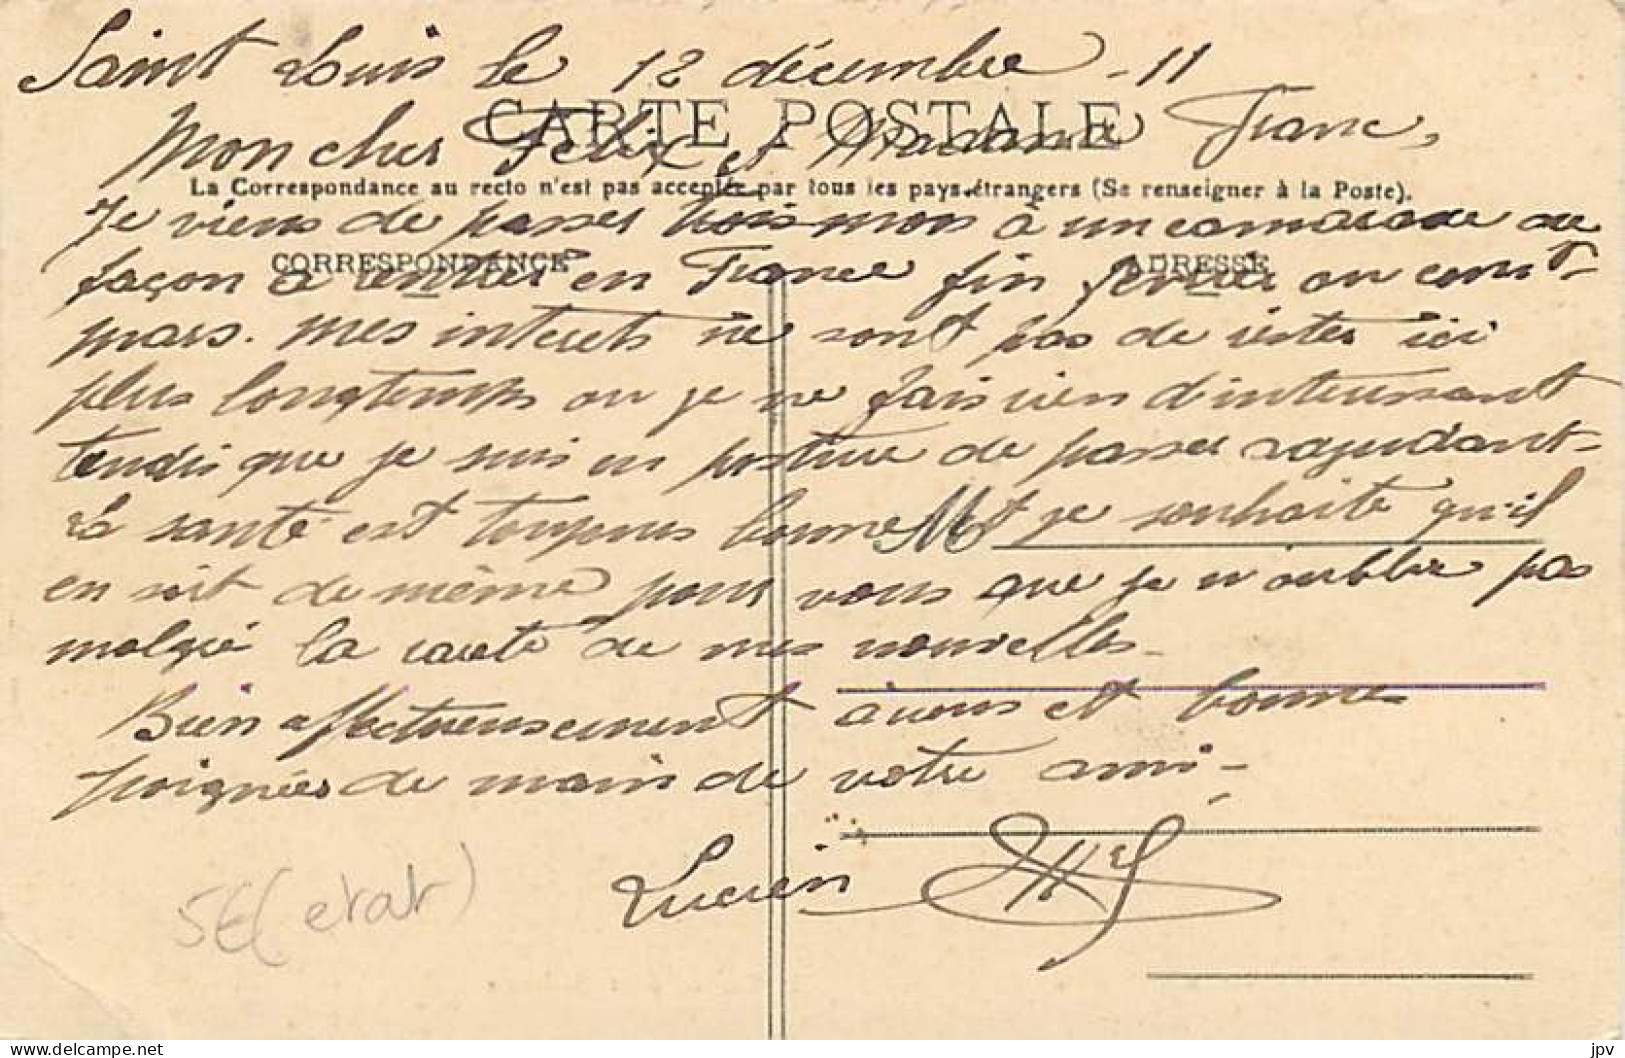 Saint Louis le 12 décembre - 11
CARTE POSTALE
Mon cher Felix et Madame Franc,
La Correspondance au recto n'est pas acceptée par tous les pays étrangers (Se renseigner à la Poste).
Je viens de passer trois mois à un camarade de
CORRESPONDANCE ADRESSE
façon à rentrer en France fin fevrier ou cour't
mars. Mes interets ne sont pas de rester ici
plus longtemps ou je ne fais rien d'interressant
tendis que je suis en posture de passer rajudant-
La santé est toujours bonne et je souhaite qu'il
M
en soit de même pour vous que je n'oublie pas
malgré la rareté de mes nouvelles.
Bien affectueusement à vous et bonnes
poignées de main de votre ami-
Lucien
5€ (etat)
jpv